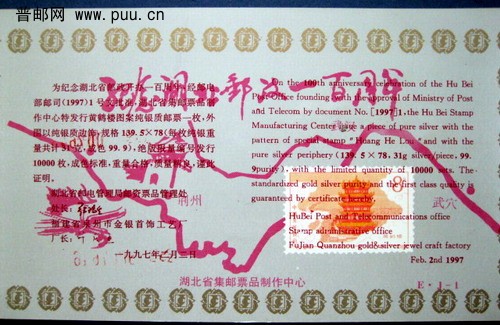 普邮网 www.puu.cn
湖北郵政一百周年
为纪念湖北省邮政开办一百周年,经邮
电部邮司(1997)1号文批准,湖北省集邮票品制
作中心特发行黄鹤楼图案纯银质邮票一枚,外
围以纯银质边饰,规格139.5×78(每枚纯银重
量共计31克,成色99.9),绝版限量编号发行
10000枚,成色标准,重量合格,质量精良,谨此
证明。
湖北省邮电管理局邮资票品管理处
处长:
福建省泉州市金银首饰工艺厂
厂长:
一九九七年二月二日
On the 100th anniversary celebration of the Hu Bei
Post Office founding with the approval of Ministry of Post
and Telecom by document No. [1997].1, the Hu Bei Stamp
Manufacturing Center issue a set of pure silver with the
pattern of special stamp "Huang He Lau" and with the
pure silver periphery (139.5×78,31g silver/piece.99.
9purity) with the limited quantity of 10000 parts. The
standardized gold silver purity and the first class quality is
guaranteed by certificate hereby.
HuBei Post and Telecommunications office
Stamp administrative office
FuJian Quanzhou gold&silver jewel craft factory
Feb. 2nd 1997
荆州
武穴
8分
湖北省集邮票品制作中心
E·1-1